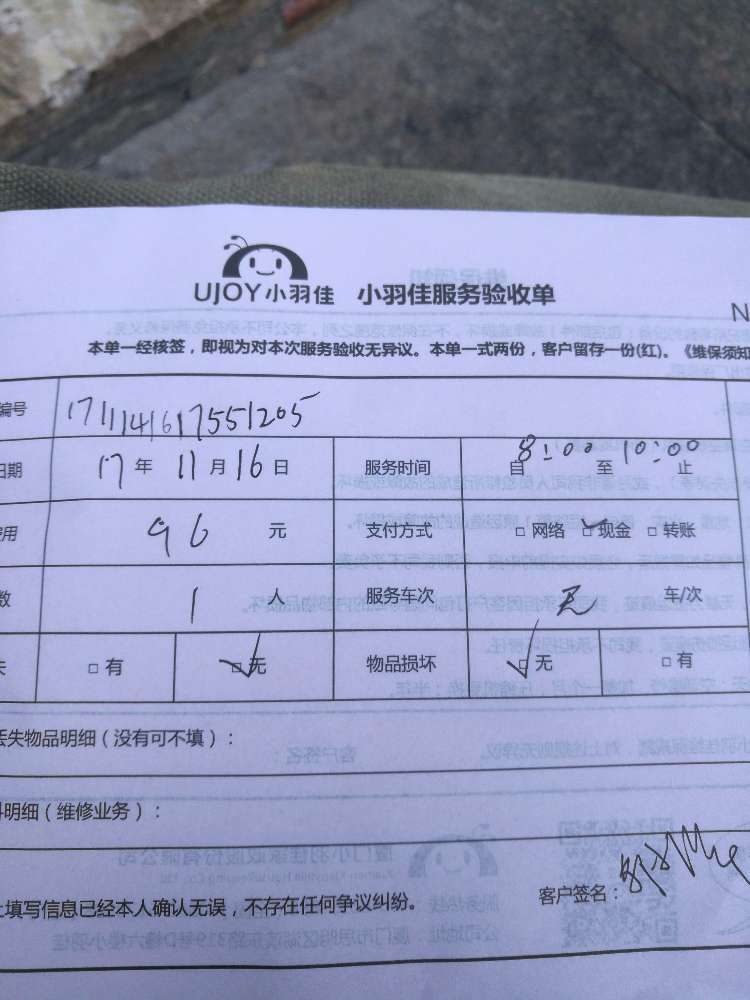 UJOY小羽佳 小羽佳服务验收单
N
本单一经核签，即视为对本次服务验收无异议。本单一式两份，客户留存一份(红)。《维保须知
编号 1711141617551205
日期 17 年 11 月 16 日 服务时间 自 8:00 至 10:00 止
费用 96 元 支付方式 □ 网络 □ 现金 □ 转账
数 1 人 服务车次 无 车/次
失 □ 有 □ 无 物品损坏 □ 无 □ 有
丢失物品明细（没有可不填）：
料明细（维修业务）：
上填写信息已经本人确认无误，不存在任何争议纠纷。 客户签名：